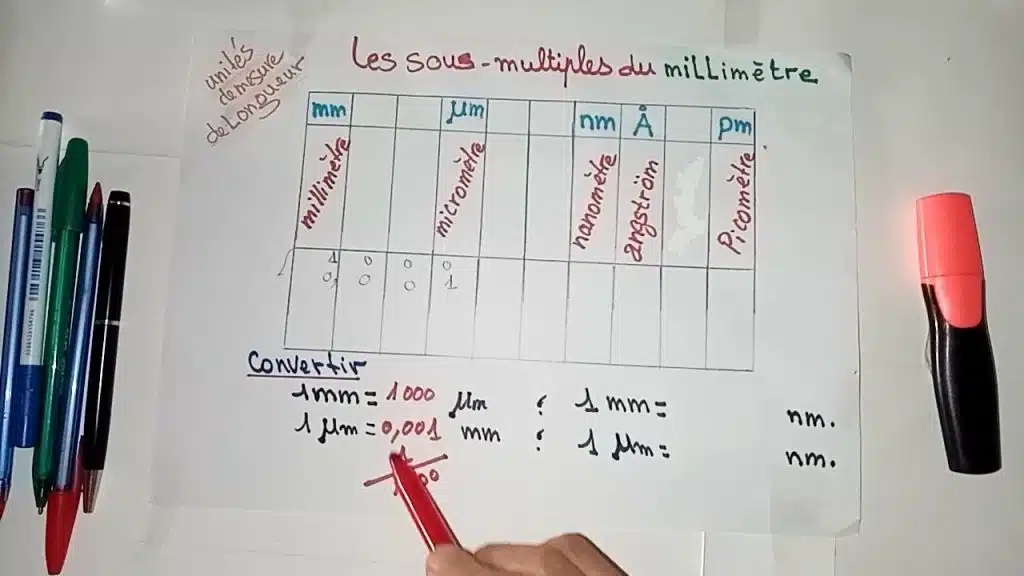 unités
de mesure
de Longueur
Les sous-multiples du millimètre
mm μm nm Å pm
millimètre micromètre nanomètre angströim Picomètre
1 0 0 0
0, 0 0 1
Convertir
1mm = 1000 μm ; 1 mm = nm.
1 μm = 0,001 mm ; 1 μm = nm.